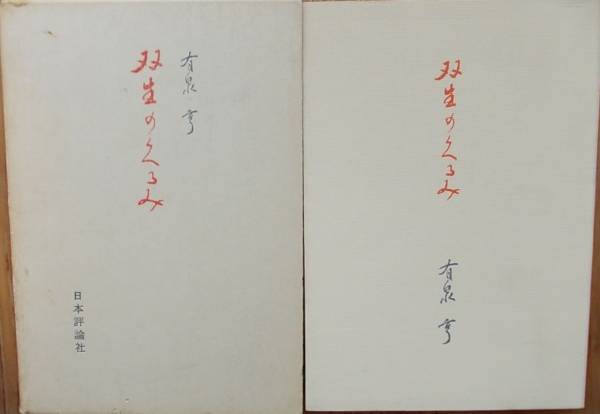 有泉 亨
双生のくるみ
日本評論社
双生のくるみ
有泉 亨